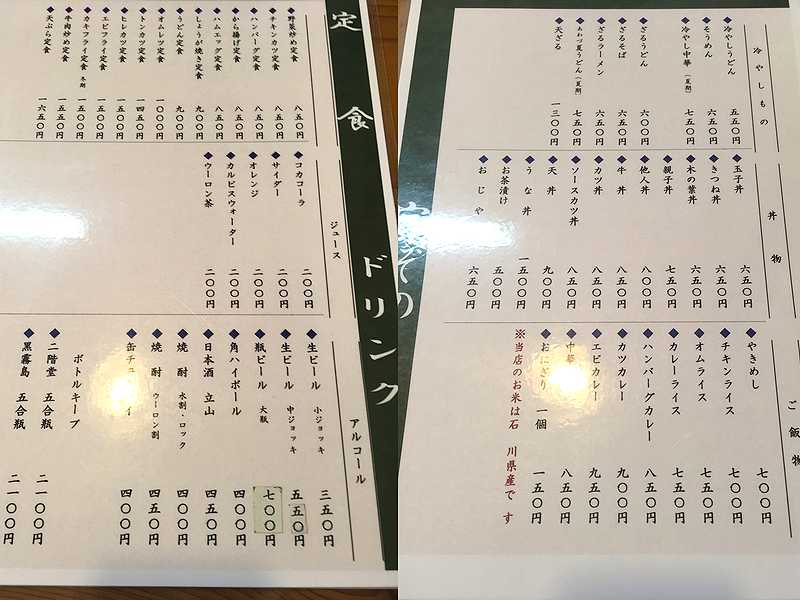 定食
野菜炒め定食 八五〇円
チキンカツ定食 八五〇円
ハンバーグ定食 八五〇円
から揚げ定食 八五〇円
ハムエッグ定食 八五〇円
しょうが焼き定食 九〇〇円
うどん定食 九〇〇円
オムレツ定食 一〇〇〇円
トンカツ定食 一四五〇円
ヒレカツ定食 一五〇〇円
エビフライ定食 一五〇〇円
カキフライ定食 冬期 一五〇〇円
牛肉炒め定食 一五五〇円
天ぷら定食 一六五〇円
ドリンク
ジュース
コカコーラ 二〇〇円
サイダー 二〇〇円
オレンジ 二〇〇円
カルピスウォーター 二〇〇円
ウーロン茶 二〇〇円
アルコール
生ビール 小ジョッキ 三五〇円
生ビール 中ジョッキ 五五〇円
瓶ビール 大瓶 七〇〇円
角ハイボール 四〇〇円
日本酒 立山 四五〇円
焼酎 水割・ロック 四〇〇円
焼酎 ウーロン割 四五〇円
缶チュ 四〇〇円
ボトルキープ
二階堂 五合瓶 二一〇〇円
黒霧島 五合瓶 二一〇〇円
冷やしもの
冷やしうどん 五五〇円
そうめん 六五〇円
冷やし中華(夏期) 七五〇円
ざるうどん 六〇〇円
ざるそば 六五〇円
ざるラーメン 六五〇円
あわづ夏うどん(夏期) 七五〇円
天ざる 一三〇〇円
丼物
玉子丼 六五〇円
きつね丼 六五〇円
木の葉丼 六五〇円
親子丼 七五〇円
他人丼 八〇〇円
牛丼 八五〇円
カツ丼 八五〇円
ソースカツ丼 八五〇円
天丼 九〇〇円
うな丼 一五〇〇円
お茶漬け 五〇〇円
おじや 六五〇円
ご飯物
やきめし 七〇〇円
チキンライス 七〇〇円
オムライス 七五〇円
カレーライス 七五〇円
ハンバーグカレー 八五〇円
カツカレー 九〇〇円
エビカレー 九五〇円
中華 八五〇円
おにぎり 一個 一五〇円
※当店のお米は石川県産です
その